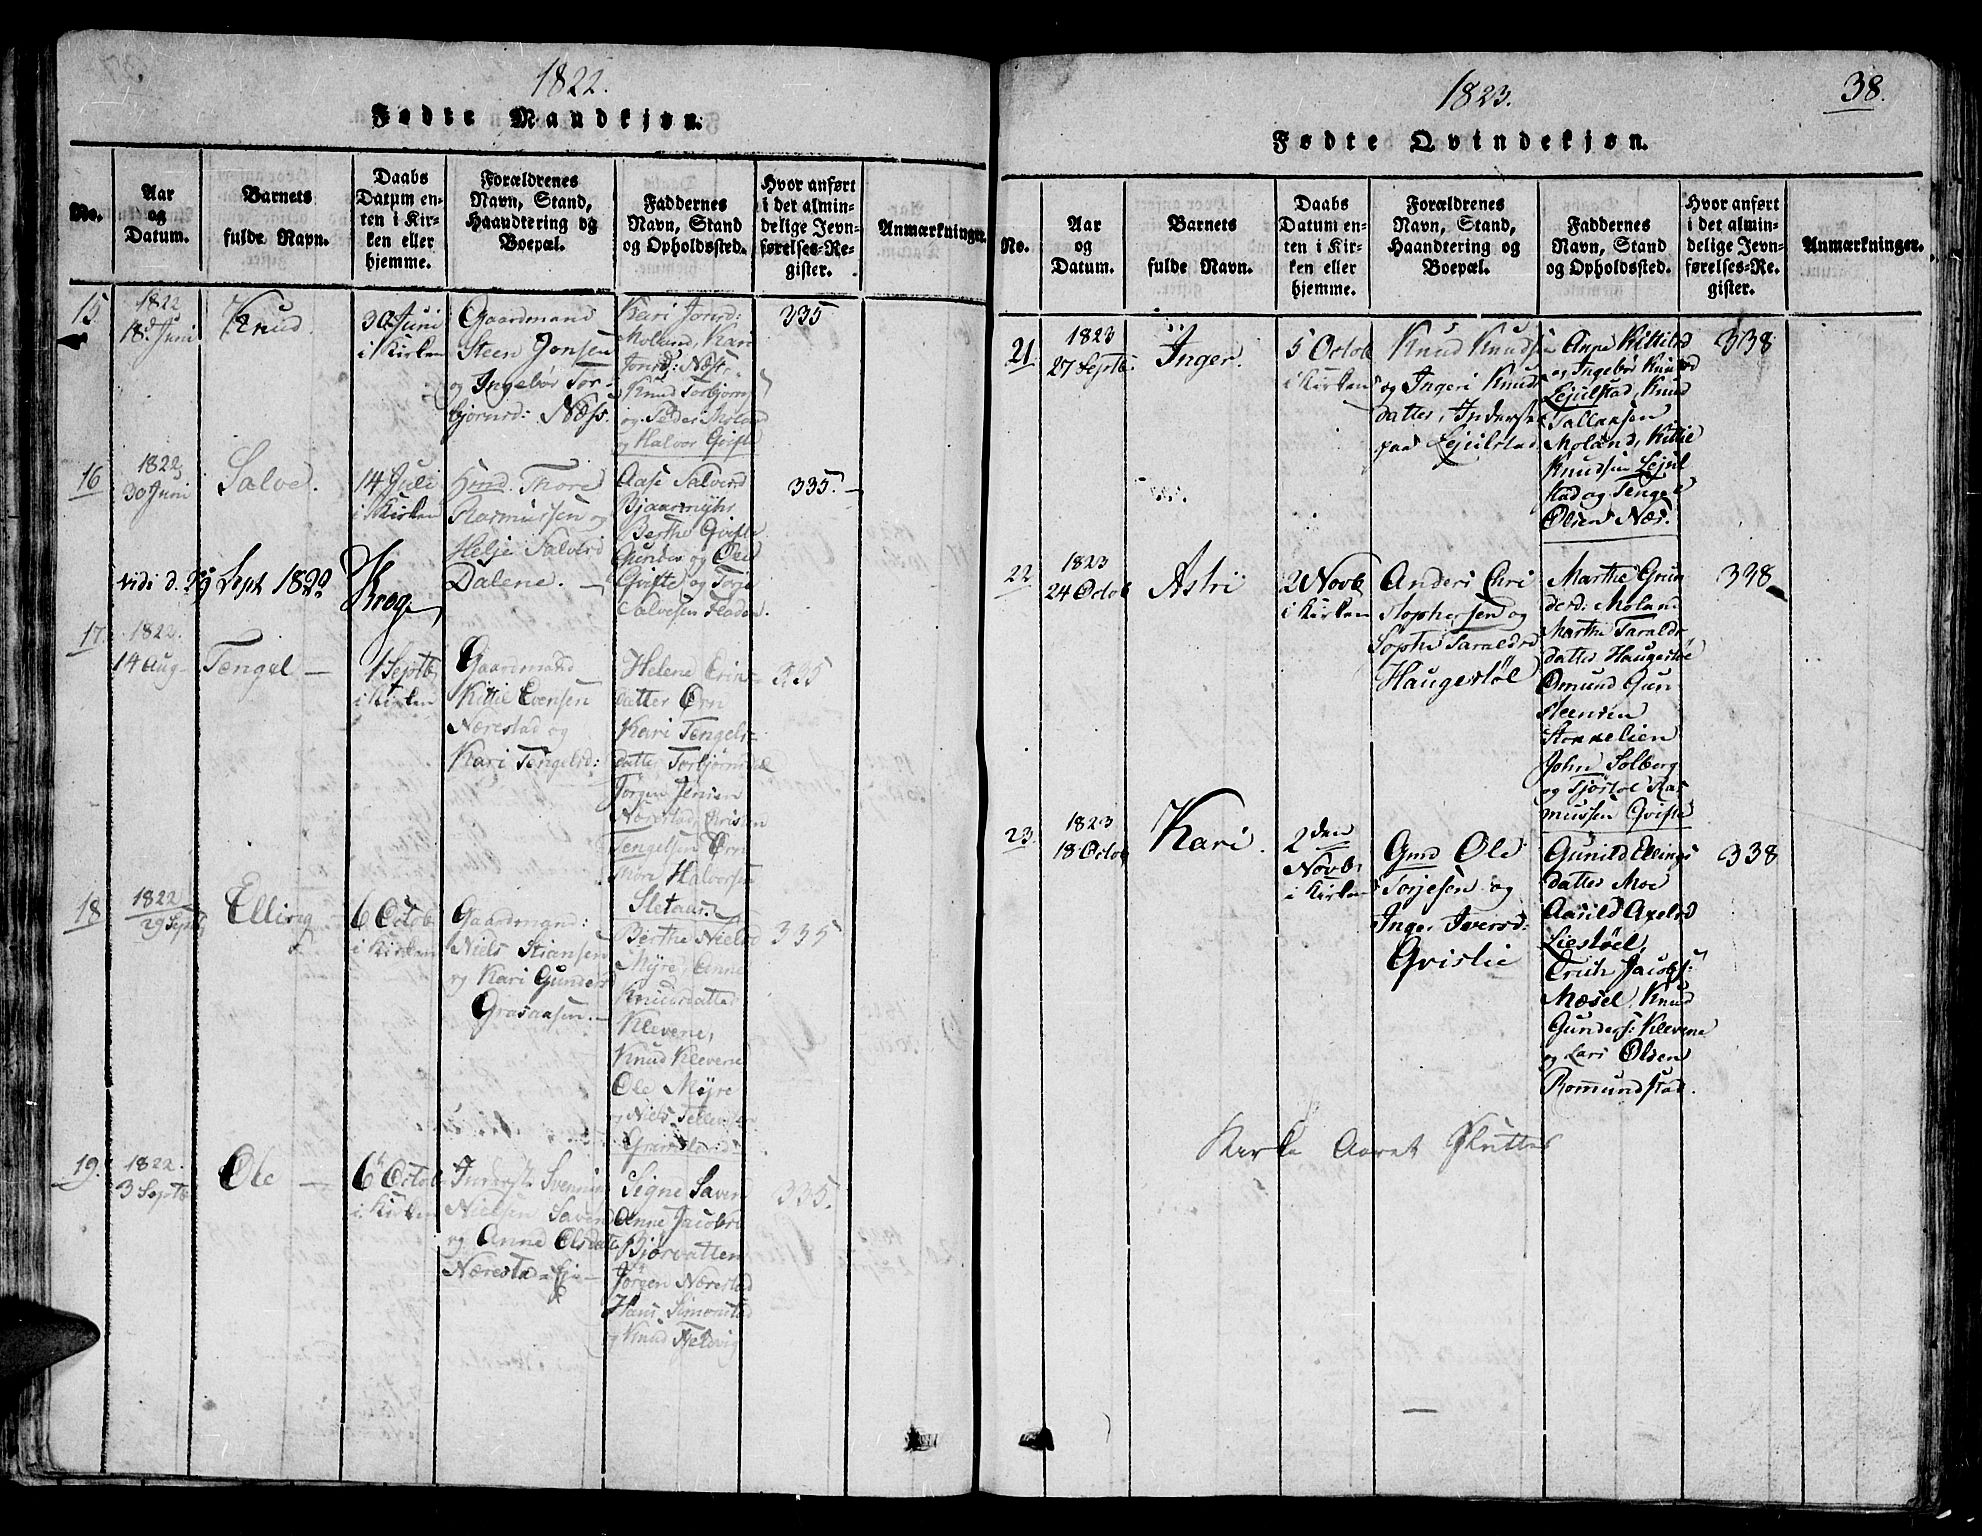 1822.
Fødte Mandkjøn.
No.
Aar
og
Datum.
Barnets
fulde Navn.
Daabs
Datum en-
ten i Kir-
ken eller
hjemme.
Forældrenes
Navn, Stand,
Haandtering og
Boepæl.
Faddernes
Navn, Stand
og Opholdssted.
Hvor anført
i det almin-
delige Jevn-
førelses-Re-
gister.
Anmærkninger.
15
1822
18. Juni
Knud.
30 Juni
i Kirken
Gaardmand
Steen Jonsen
og Ingebor Tor-
bjørnsd: Næss.
Kari Jonsd:
Moland, Kari
Jonsd: Næs
Knud Torbjørns
og Peder Moland
og Halvor Qvifte
335
16
1822
30 Juni
Salve.
14 Juli
i Kirken
Huusmd. Thore
Rasmussen og
Helje Salvesd
Dalene. —
Aase Salvesd
Bjaarmyhr
Berthe Qvifte
Gunder og Ole
Qvifte og Torje
Salvesen
335. —
vidi d. 29 Sept 1822
Krog
17
1822.
14 Aug
Tengel —
1 Septb
i Kirken
Gaardmand
Kittil Evensen
Nærestad og
Kari Tengelsd:
Helene Erics
datter Ørn
Kari Tengels-
datter Torbjørns
Jørgen Jensen
Nærestad, Erik
Tengelsen Ørn
Thore Halvorsen
Sletaas.
335
18
1822
29 Septb
Elling
6 Octob
i Kirken
Gaardmand:
Niels Stiansen
og Kari Gunders
Graaaasen. —
Berthe Nielsd
Myre, Anne
Knudsdatter
Klevene,
Knud Klevene
Ole Myre
og Niels Tellefsen
335
19.
1822.
3 Septb
Ole —
6 Octob
i Kirken
Inderst Svenning
Nielsen Saven
og Anne Olsdatter
Nærestad Eje
Signe Saven
Anne Jacobsd
Bjørvatten
Jørgen Nærestad
Hans Simonstad
og Knud
335.
1823.
38.
Fødte Qvindekjøn.
No.
Aar
og
Datum.
Barnets
fulde Navn.
Daabs
Datum en-
ten i Kir-
ken eller
hjemme.
Forældrenes
Navn, Stand,
Haandtering og
Boepæl.
Faddernes
Navn, Stand
og Opholdssted.
Hvor anført
i det almin-
delige Jevn-
førelses-Re-
gister.
Anmærkninger.
21.
1823
27 Septb.
Inger.
5 Octob
i Kirken
Knud Knuds
og Ingeri Knuds
datter, Inderster
paa Lejulstad
Anne Kittilsd
og Ingebor Knudsd
Lejulstad, Knud
Tallaksen
Moland, Kittil
Knudsen Lejul
stad og Tengel
Olsen Næs.
338
22
1823
24 Octob
Astri
2 Novb
i Kirken
Anders Chri
stophersen og
Sophie Taraldsd
Haugestøl
Marthe Gun
dersd: Moland
Marthe Taralds
datter Haugestøl
Osmund Gun
steensen
Stoxxelien
John Solberg
og Tjøstol Ras
mussen Qvifte
338
23.
1823
18 Octob
Kari.
2 den
Novb
i Kirken
Gmd Ole
Torjesen og
Inger Iversd:
Qvislie
Gunild Ellings
datter Moe
Aasild Axelsd
Liestøel,
Erich Jacobs:
Mæsel, Knud
Gunders: Klevene
og Lars Olsen
Romundstad.
338
Kirke Aaret Sluttes